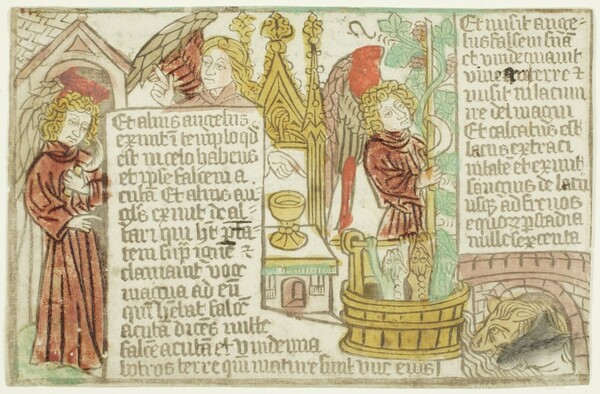 Et alius angelus
exiuit d templo qd
est in celo habēs
et ipse falcem a
cutā Et alius an
gl's exiuit de al
tari qui ht ptā
tem sup ignē ⁊
clamauit voce
magna ad eū
qui hēbat falcē
acutā dicēs mitte
falcē acutā et vindemia
botros terre qui mature sunt vue eius
Et misit ange
lus falcem suā
et vindemiauit
vineā terre ⁊
misit in lacum
ire dei magni
Et calcatus est
lacus extra ci
uitatē et exiuit
sanguis de lacu
usq ad frenos
equoꝝ p stadia
mille sexcenta